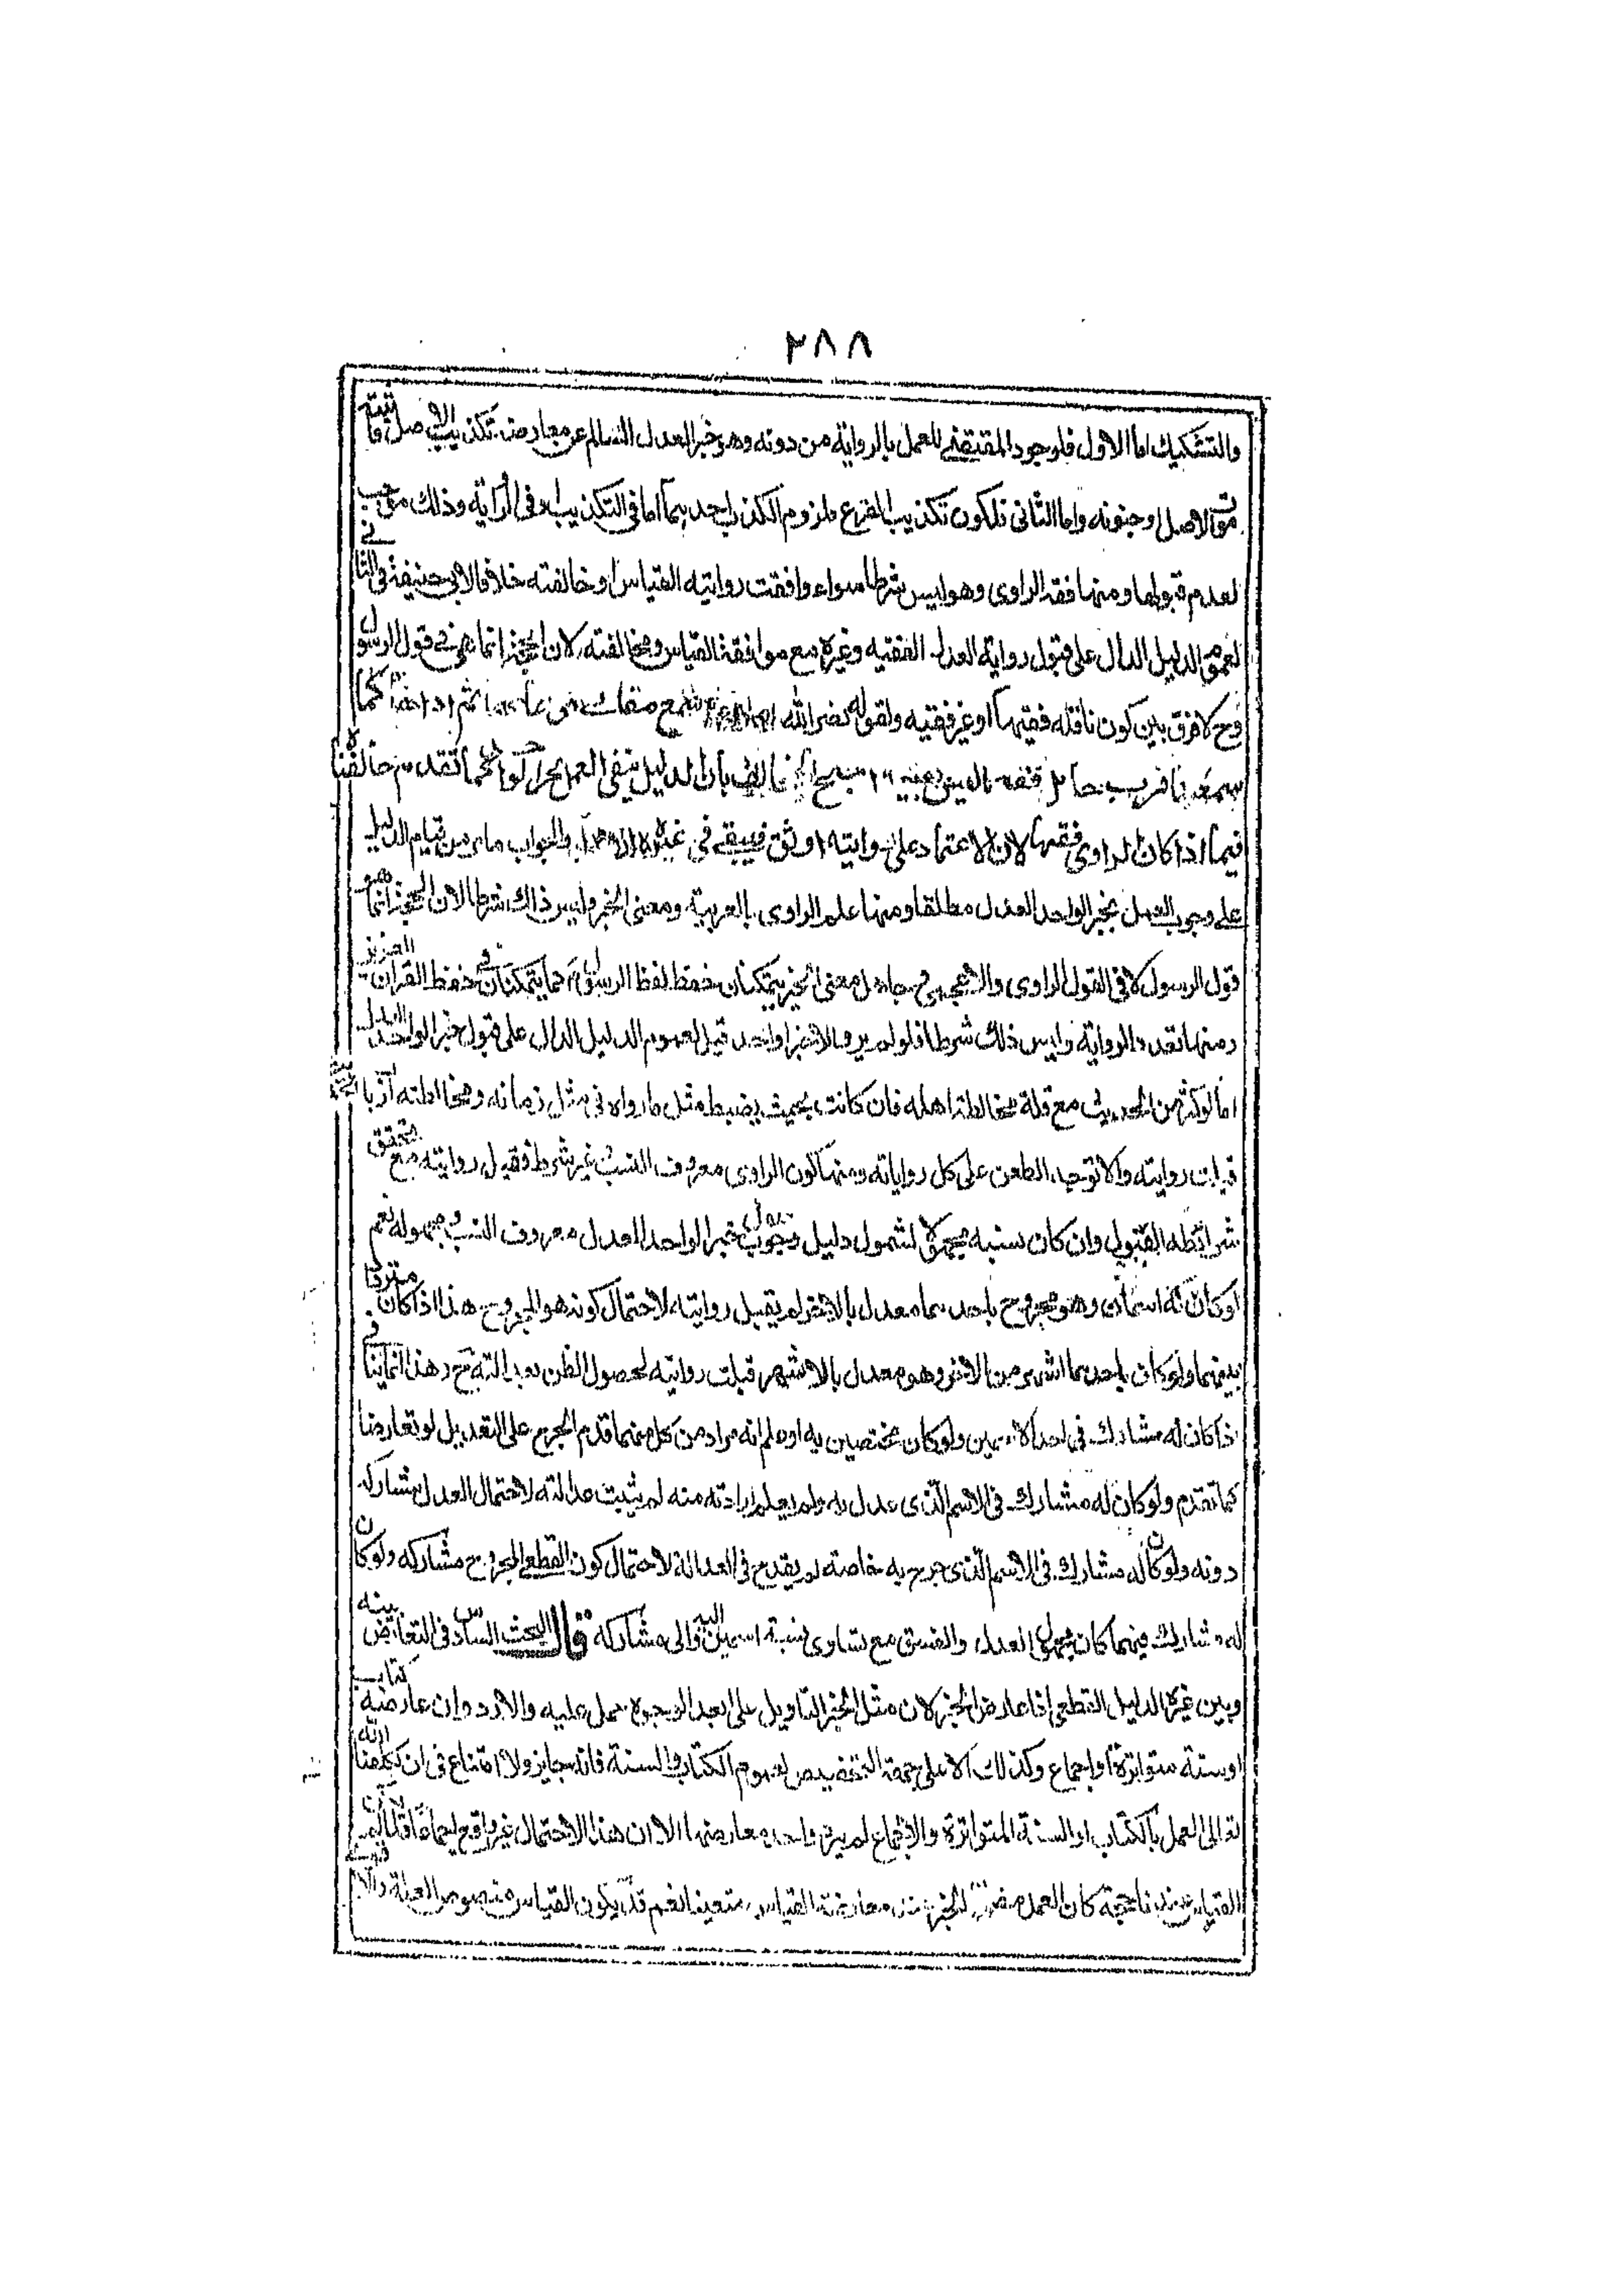 ٢٨٨
والتشكيك اما الاول فلوجود المقتضى للعمل بالرواية من دونه وهو خبر العدل السالم عن معارضة تكذيب الاصل
موت الاصل او جنونه واما الثانى فلكون تكذيب الفرع ملزوم الكذب باحدهما اما فى التكذيب او فى الرواية وذلك موجب
لعدم قبولها ومنها فقه الراوى وهو ليس شرطا سواء وافقت روايته القياس او خالفته خلافا لابى حنيفة فى الثانى
لعموم الدليل الدال على قبول رواية العدل الفقيه وغيره مع موافقة القياس ومخالفته لان الحجة انما هى فى قول الرسول
وح لا فرق بين كون ناقله فقيها او غير فقيه ولقوله نضر الله سمع مقالتى ثم كما
سمعها فرب حامل فقه ليس بفقيه احتج المخالف بان الدليل ينفى العمل بخبر الواحد لما تقدم خالفناه
فيما اذا كان الراوى فقيها لان الاعتماد على روايته اوثق فيبقى فى غيره والجواب ما مر من قيام الدليل
على وجوب العمل بخبر الواحد العدل مطلقا ومنها علم الراوى بالعربية ومعنى الخبر وليس ذلك شرطا لان الحجة انما هو
قول الرسول لا فى القول الراوى والاعجمى وجاهل معنى الخبر يتمكنان حفظ لفظ الرسول كما يتمكنان فى حفظ القرآن العزيز
ومنها تعدد الرواية وليس ذلك شرطا فلو لم يرو الا خبرا واحد قبل لعموم الدليل الدال على قبول خبر الواحد العدل
اما لو كثر من الحديث مع قلة مخالطة اهله فان كانت بحيث يضبط مثل ما رواه فى مثل زمانه ومخالطته
قبلت روايته والا توجه الطعن على كل رواياته ومنها كون الراوى معروف النسب غير شرط فقبل روايته مع تحقق
شرائطه القبول وان كان نسبه مجهولا لشمول دليل وجوب قبول خبر الواحد العدل معروف النسب ومجهوله نعم
لو كان له اسمان وهو مجروح باحدهما معدل بالاخر لم يقبل روايته لاحتمال كونه هو المجروح هذا اذا كان مترددا
بينهما ولو كان باحدهما اشهر من الاخر وهو معدل بالاشهر قبلت روايته لحصول الظن بعدالته ح وهذا انما يتأتى فى
اذا كان له مشارك فى احد الاسمين ولو كان مختصين به او علم انه مراد من كل منهما قدم الجرح على التعديل لو تعارضا
كما تقدم ولو كان له مشارك فى الاسم الذى عدل به ولم يعلم ارادته منه لم يثبت عدالته لاحتمال العدل مشاركه
دونه ولو كان له مشارك فى الاسم الذى جرح به خاصته لم يقدح فى العدالة لاحتمال كون القطعى المجروح مشاركه ولو كان
له مشارك فيهما كان مجهول العدل والفسق مع تساوى نسبة اسمين اليه والى مشاركه قال البحث السادس فى التعارض بينه
وبين غيره الدليل القطعى اذا عارض الخبر لان مثل الخبر التاويل على ابعد الوجوه حمل عليه والا رد وان عارضه كتاب
او سنة متواترة او اجماع وكذلك الا على جهة التخصيص لعموم الكتاب والسنة فانه جايز ولا امتناع فى ان كلفنا الله
تعالى العمل بالكتاب او السنة المتواترة والاجماع لم يرد واحد معارضها الا ان هذا الاحتمال غير واقع اجماعا
القياس عندنا حجة كان العمل الخبر عند معارضة القياس متعينا نعم قد يكون القياس منصوص العلة